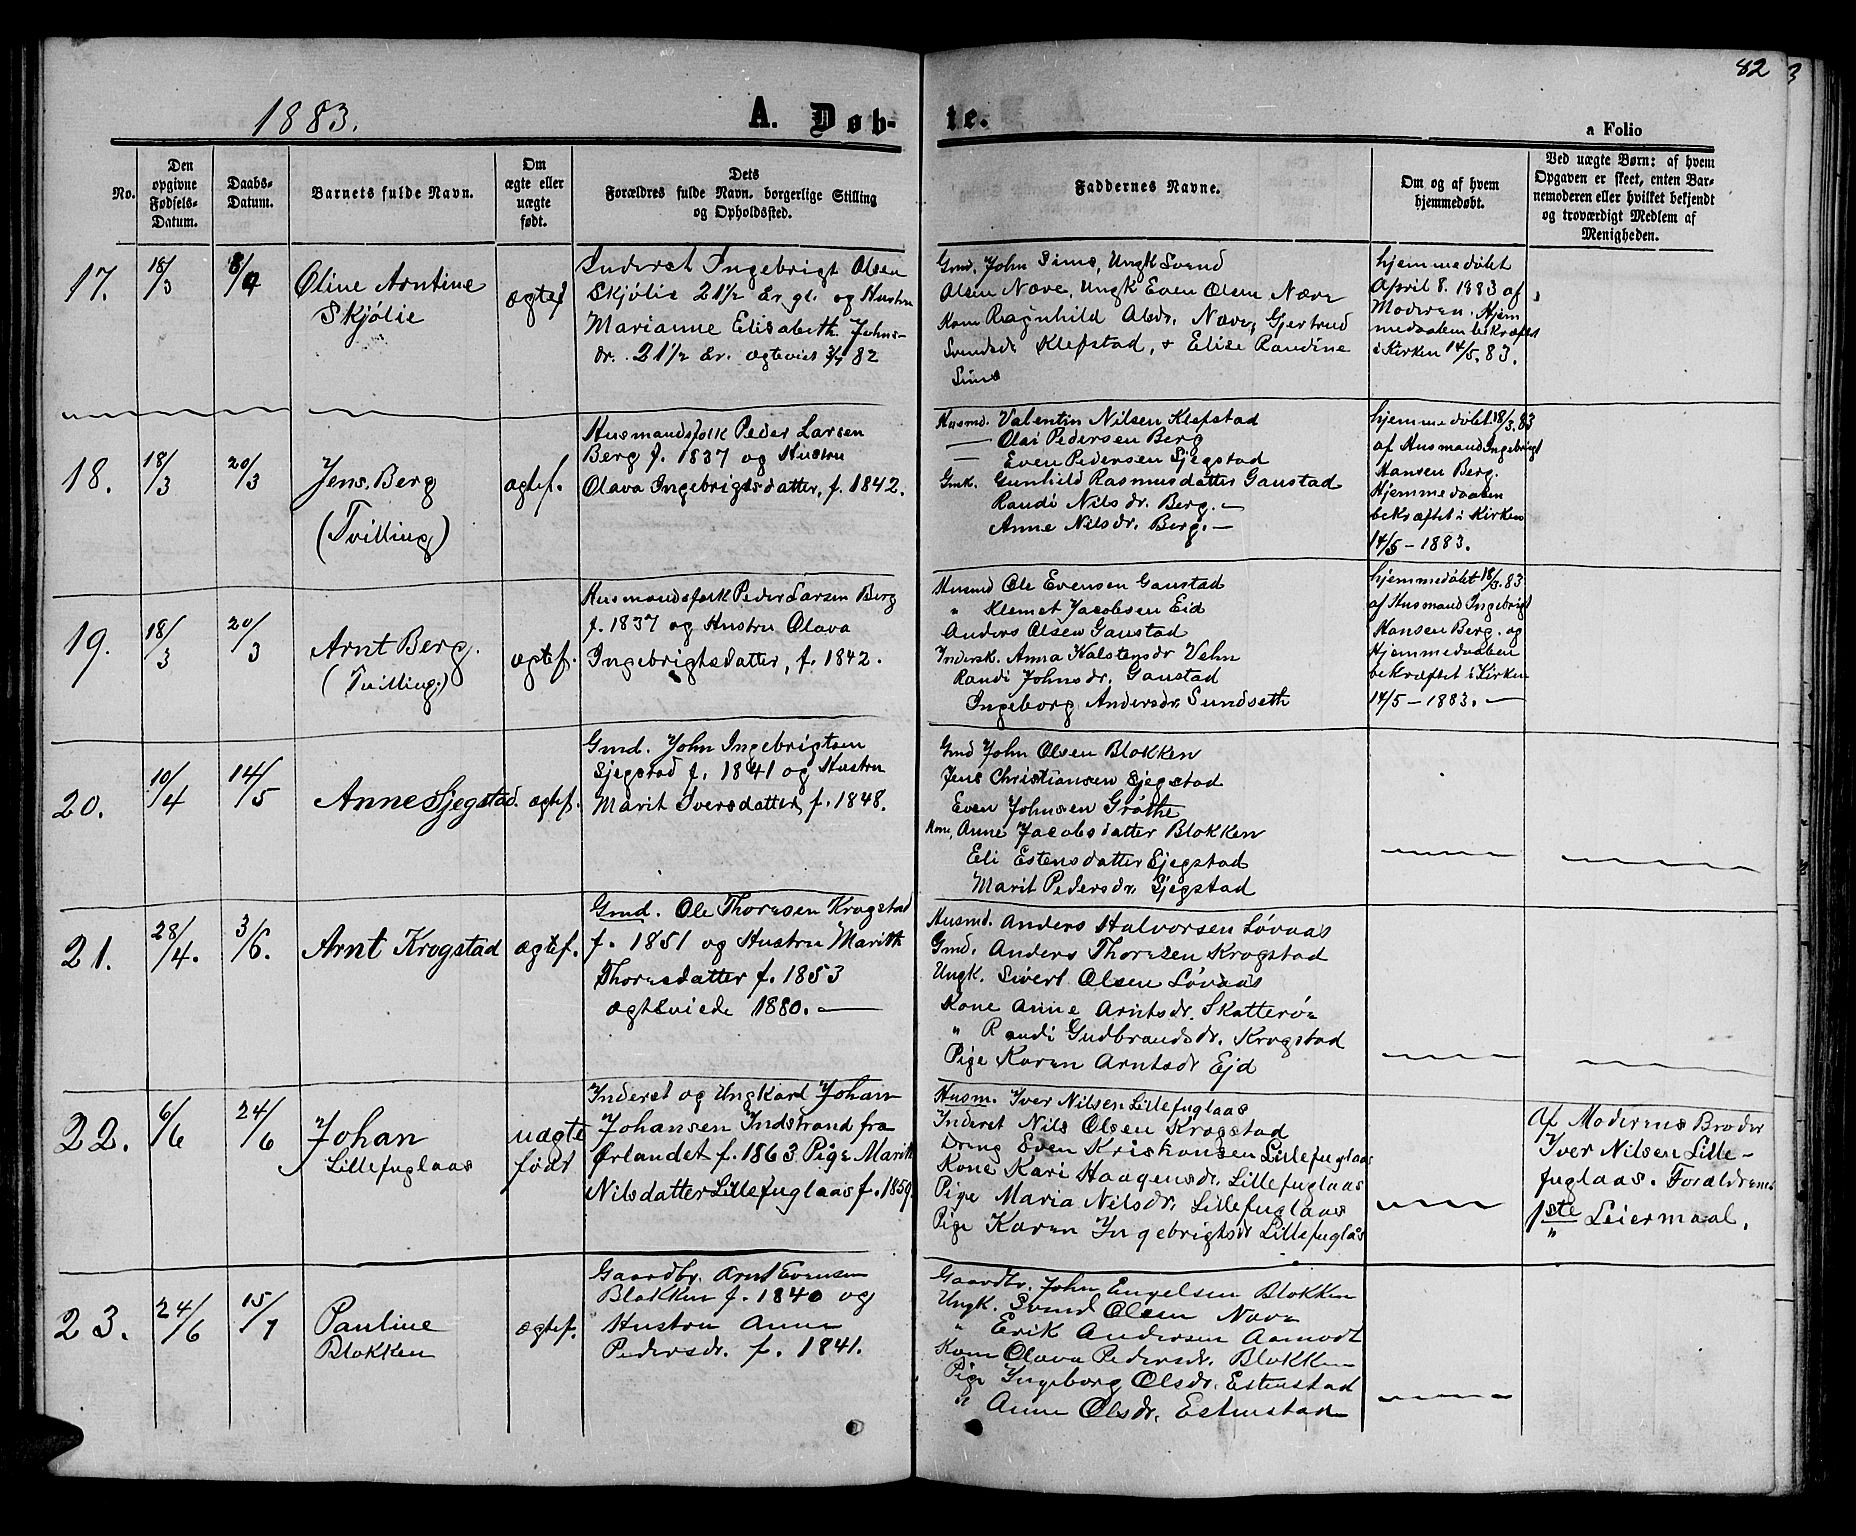 82
1883.
A. Døb-
te.
a Folio
No.
Den
opgivne
Fødsels-
Datum.
Daabs-
Datum.
Barnets fulde Navn.
Om
ægte eller
uægte
født.
Dets
Forældres fulde Navn, borgerlige Stilling
og Opholdssted.
Faddernes Navne.
Om og af hvem
hjemmedøbt.
Ved uægte Børn: af hvem
Opgaven er skeet, enten Bar-
nemoderen eller hvilket bekjendt
og troværdigt Medlem af
Menigheden.
17.
18/3
8/4
Oline Arntine
Skjølie
ægtef
Inderst Ingebrigt Olsen
Skjølie 21½ Er. gl. og Hustru
Marianne Elisabeth Johns-
dr. 21½ Er. ægteviet 82
Gmd. John Sims, Ungk Svend
Olsen Næve, Ungk Even Olsen Næve
Kone Ragnhild Olsdr. Næve, Gjertrud
Svendsdr Klefstad, & Elise Randine
Sims
hjemmedøbt
April 8. 1883 af
Moderen. Hjem
medaaben bekræftet
i Kirken 14/5. 83.
18.
18/3
20/3
Jens Berg
(Tvilling)
ægtef.
Husmandsfolk Peder Larsen
Berg f. 1837 og Hustru
Olava Ingebrigtsdatter, f. 1842.
Husmd. Valentin Nilsen Klefstad
— Olai Pedersen Berg
— Even Pedersen Sjegstad
Gmk. Gunhild Rasmusdatter Gaustad
Randi Nilsdr. Berg. —
Anne Nilsdr. Berg. —
hjemmedøbt 18/3. 83
af Husmand Ingebrigt
Hansen Berg.
Hjemmedaaben
bekræftet i Kirken
14/5 – 1883.
19.
18/3
20/3
Arnt Berg.
(Tvilling.)
ægtef.
Husmandsfolk Peder Larsen Berg
f. 1837 og Hustru Olava
Ingebrigtsdatter, f. 1842.
Husmd Ole Evensen Gaustad
" Klemet Jacobsen Eid
Anders Olsen Gaustad
Indersk. Anna Halstensdr Vehn
Randi Johnsdr. Gaustad
Ingeborg Andersdr. Sundseth
hjemmedøbt 18/3. 83
af Husmand Ingebrigt
Hansen Berg. og
Hjemmedaaben
bekræftet i Kirken
14/5 – 1883. —
20.
10/4
14/5
Anne Sjegstad
ægtef.
Gmd. John Ingebrigtsen
Sjegstad f. 1841 og Hustru
Marit Iversdatter, f. 1848.
Gmd John Olsen Blokken
Jens Christiansen Sjegstad
Even Johnsen Grøthe
Kone, Anne Jacobsdatter Blokken
Eli Estensdatter Sjegstad
Marit Pedersdr. Sjegstad
21.
28/4.
3/6.
Arnt Krogstad
ægtef.
Gmd. Ole Thoresen Krogstad
f. 1851 og Hustru Marith
Thoresdatter f. 1853
ægteviede 1880. —
Husmd. Anders Halvorsen Løvaas
Gmd. Anders Thoresen Krogstad
Ungk. Sivert Olsen Løvaas
Kone Anne Arntsdr. Skatterøe
" Randi Gudbrandsdr. Krogstad
Pige Karen Arntsdr Ejd
22.
6/6
24/6
Johan
Lillefuglaas
uægte
født
Inderst og Ungkarl Johan
Johansen Indstrand fra
Ørlandet f. 1863 Pige Marith
Nilsdatter Lillefuglaas f. 1859.
Husm. Iver Nilsen Lillefuglaas
Inderst Nils Olsen Krogstad
Dreng Even Kristiansen Lillefuglaas
Kone Kari Haagensdr. Lillefuglaas
Pige Maria Nilsdr. Lillefuglaas
Pige Karen Ingebrigtsdr Lillefuglås
Af Moderens Broder
Iver Nilsen Lille-
fuglaas. Forældrenes
1ste Leiermaal.
23.
24/6
15/7
Pauline
Blokken
ægtef.
Gaardbr. Arnt Evensen
Blokken f. 1840 og
Hustru Anne
Pedersdr. f. 1841.
Gaardbr. John Engelsen Blokken
Ungk. Svend Olsen Næve
" Erik Andersen Aamodt
Kone Olava Pedersdr. Blokken
Pige Ingeborg Olsdr. Estenstad
" Anne Olsdr. Estenstad